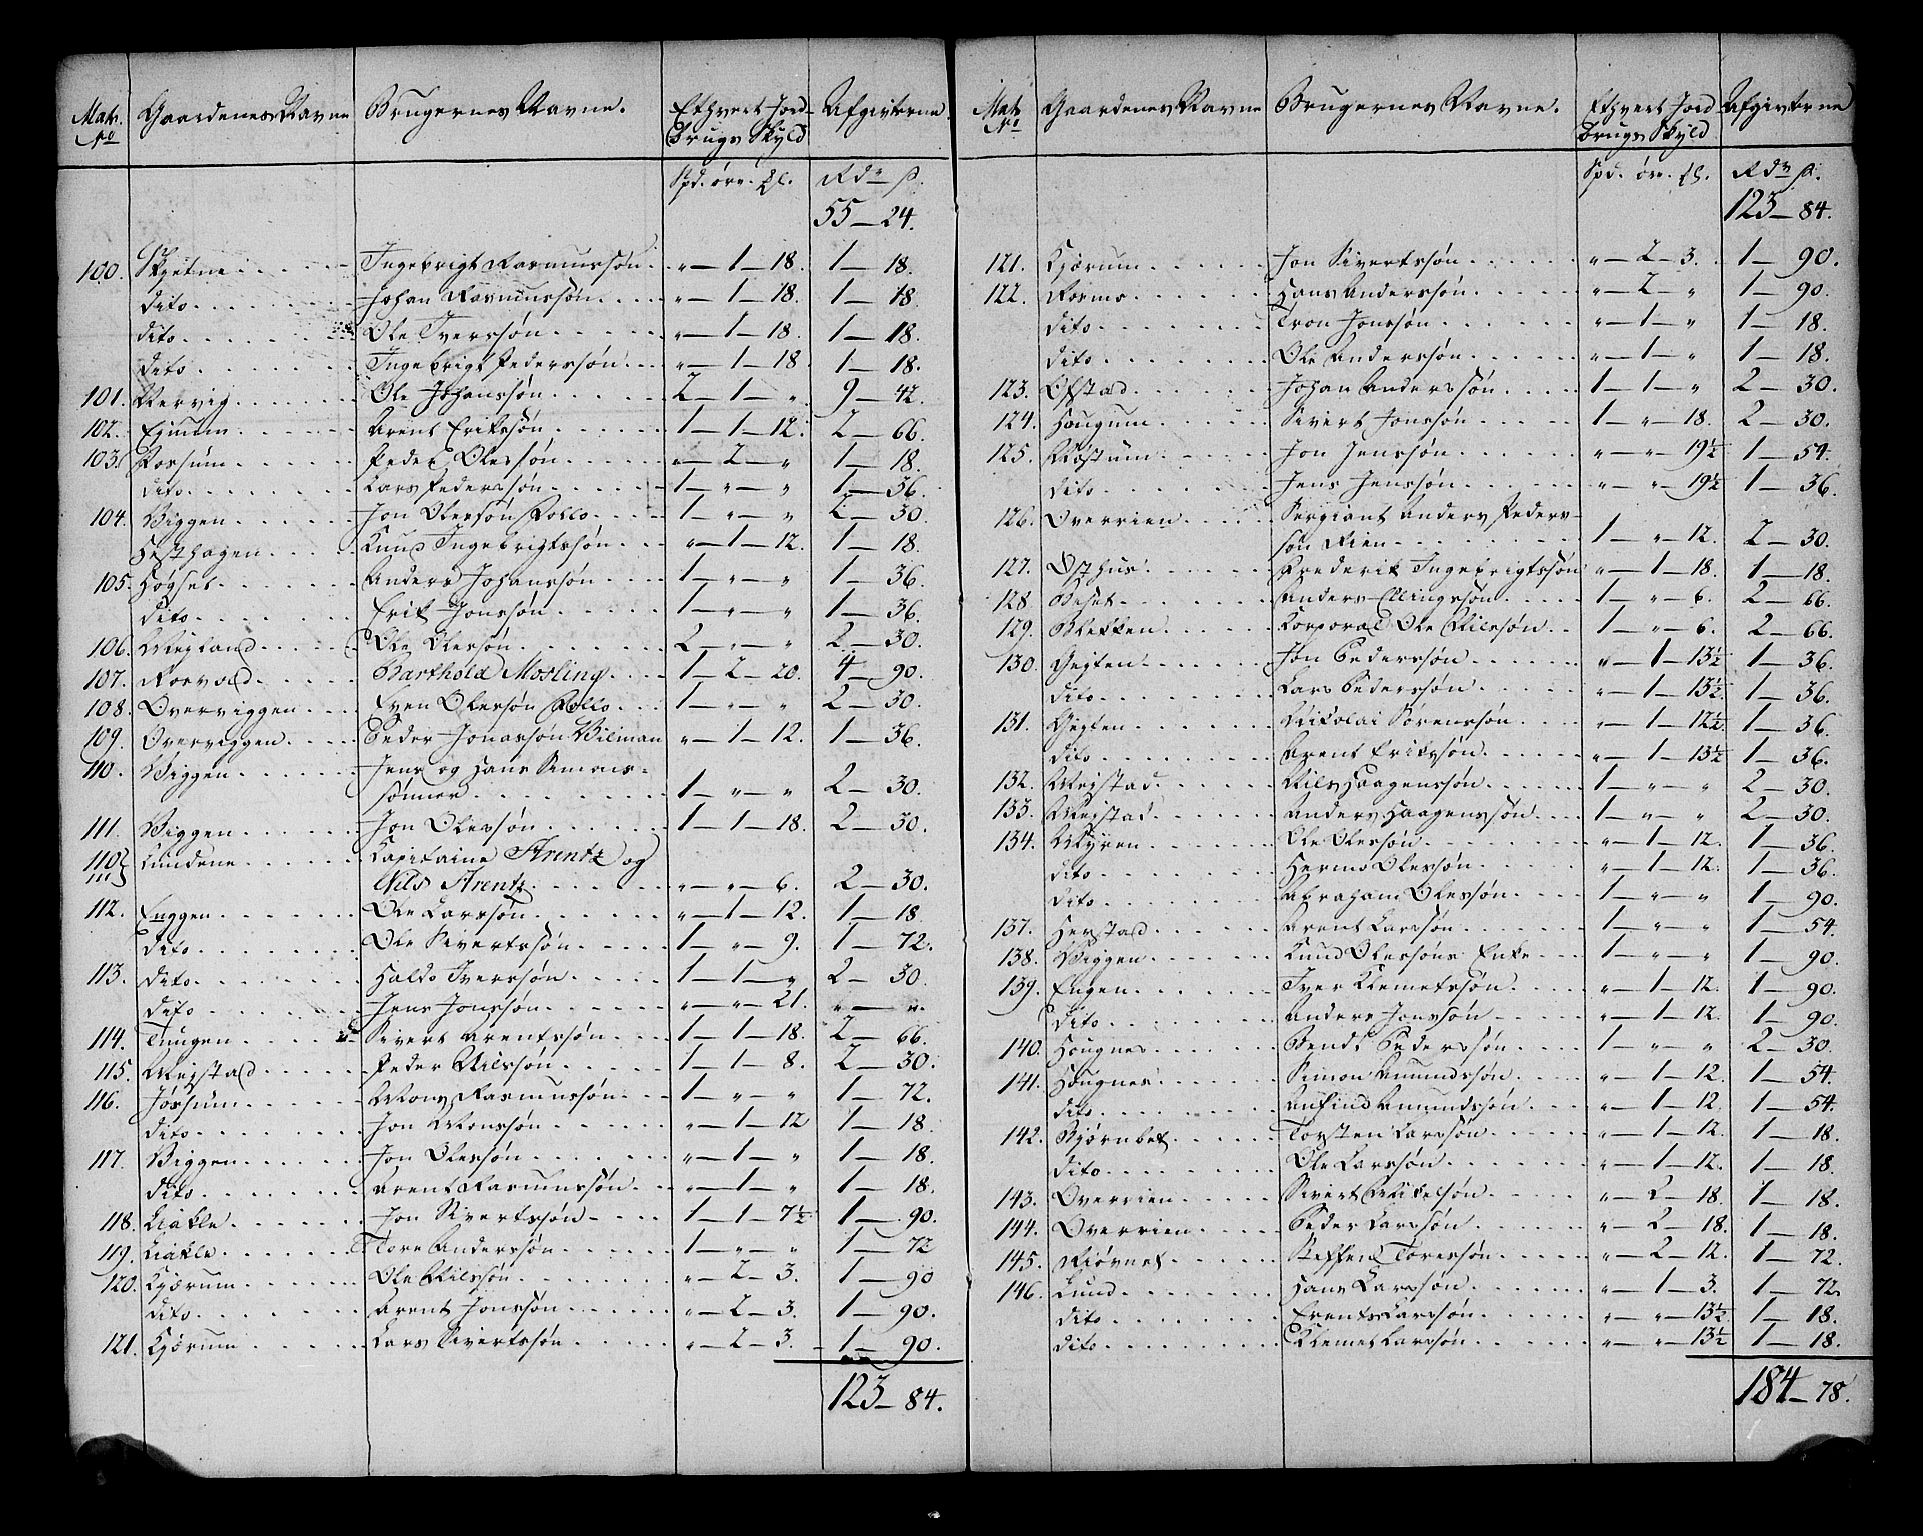 Matr. No Gaardenes Navne Brugernes Navne. Ethvert Jord- Afgivterne
brugs Skyld
Spd. öre. ℔. Rdr ß.
55 — 24.
100. Skjetne Ingebrigt Rasmussøn „ — 1 — 18. 1 — 18.
dito Johan Rasmussøn „ — 1 — 18. 1 — 18.
dito Ole Iverssøn „ — 1 — 18. 1 — 18.
dito Ingebrigt Pederssøn „ — 1 — 18. 1 — 18.
101. Nervig Ole Johanssøn 2 — 1 — „ 9 — 42.
102. Ejnum Arent Erikssøn 1 — 1 — 12. 2 — 66.
103. Porsum Peder Olessøn „ — 2 — „ 1 — 18.
dito Lars Pederssøn 1 — „ — „ 1 — 36.
104. Viggen Jon Olessøn Rollo 1 — „ — „ 2 — 30.
Hesthagen Knud Ingebrigtssøn „ — 1 — 12. 1 — 18.
105. Høgset Anders Johanssøn 1 — „ — „ 1 — 36.
dito Erik Jonssøn 1 — „ — „ 1 — 36.
106. Mejland Ole Olessøn 2 — „ — „ 2 — 30.
107. Rosvold Barthold Mosling 1 — 2 — 20. 4 — 90.
108. Overviggen Sven Olessøn Rollo 1 — „ — „ 2 — 30.
109. Overviggen Peder Jonassøn Bilman „ — 1 — 12. 1 — 36.
110. Viggen Jens og Hans Simons-
sønner 1 — „ — „ 2 — 30.
111. Viggen Jon Olessøn 1 — 1 — 18. 2 — 30.
110 111 } Lundene Kapitaine Arentz og
Nils Arentz „ — „ — 6. 2 — 30.
112. Enggen Ole Larssøn „ — 1 — 12. 1 — 18.
dito Ole Sivertssøn 1 — „ — 9. 1 — 72.
113. dito Haldo Iverssøn 1 — 1 — „ 2 — 30.
dito Jens Jonssøn „ — „ — 21. „ — „
114. Tungen Sivert Arentssøn 1 — 1 — 18. 2 — 66.
115. Mejstad Peder Nilssøn 1 — 1 — 8. 2 — 30.
116. Jossum Mons Rasmussøn 1 — „ — „ 1 — 72.
dito Jon Monssøn „ — 1 — 12 1 — 18.
117. Viggen Jon Olessøn „ — 1 — „ 1 — 18.
dito Arent Rasmussøn „ — 1 — „ 1 — 18.
118. Liakle Jon Sivertssøn 1 — 1 — 7½ 1 — 90.
119. Liakle Tore Anderssøn 1 — „ — „ 1 — 72
120. Kjørum Ole Nilssøn „ — 2 — 3. 1 — 90
dito Arent Jonssøn „ — 2 — 3. 1 — 90.
121. Kjørum Lars Sivertssøn „ — 2 — 3. 1 — 90.
123 — 84.
Matr. No Gaardenes Navne Brugernes Navne. Ethvert Jord- Afgivterne
brugs Skyld
Spd. öre. ℔. Rdr ß.
123 — 84.
121. Kjørum Jon Sivertssøn „ — 2 — 3. 1 — 90.
122. Rosmo Hans Anderssøn „ — 2 — „ 1 — 90.
dito Tron Jonssøn „ — 1 — „ 1 — 18.
dito Ole Anderssøn „ — 1 — „ 1 — 18.
123. Ofstad Johan Anderssøn 1 — 1 — „ 2 — 30.
124. Hougum Sivert Jonssøn 1 — „ — 18. 2 — 30.
125. Røstum Jon Jenssøn „ — „ — 19½ 1 — 54.
dito Jens Jenssøn „ — „ — 19½ 1 — 36.
126. Overrien Sergiant Anders Peders-
søn Rien 1 — „ — 12. 2 — 30.
127. Østhus Frederik Ingebrigtssøn „ — 1 — 18. 1 — 18.
128. Beset Anders Ellingssøn 1 — „ — 6. 2 — 66.
129. Blekken Korporal Ole Nilssøn 1 — „ — 6. 2 — 66.
130. Gejten Jon Pederssøn „ — 1 — 13½ 1 — 36.
dito Lars Pederssøn „ — 1 — 13½ 1 — 36.
131. Gejten Nikolai Sørenssøn „ — 1 — 12½ 1 — 36.
dito Arent Erikssøn „ — 1 — 13½ 1 — 36.
132. Mejstad Nils Haagenssøn 1 — „ — „ 2 — 30.
133. Mejstad Anders Haagenssøn 1 — „ — „ 2 — 30.
134. Myren Ole Olessøn „ — 1 — 12. 1 — 36.
dito Hermo Olessøn „ — 1 — 12. 1 — 36.
dito Abraham Olessøn 1 — „ — „ 1 — 90.
137. Herstad Arent Larssøn 1 — „ — „ 1 — 54.
138. Viggen Knud Olessøns Enke 1 — „ — „ 1 — 90.
139. Engen Iver Klemetssøn „ — 1 — 12. 1 — 90.
dito Anders Jonssøn „ — 1 — 12. 1 — 90.
140. Hougnes Bendt Pederssøn 1 — „ — „ 2 — 30.
141. Hougnes Simon Amundssøn „ — 1 — 12. 1 — 54.
dito Anfind Amundssøn „ — 1 — 12. 1 — 54.
142. Bjørnbet Torsten Larssøn „ — 1 — 12. 1 — 18.
dito Ole Larssøn „ — 1 — 12. 1 — 18.
143. Overrien Sivert Mikelsøn „ — 2 — 18. 1 — 18.
144. Overrien Peder Larssøn „ — 2 — 18. 1 — 18.
145. Riøvnet Steffen Toressøn „ — 2 — 12. 1 — 72.
146. Lund Hans Larssøn „ — 1 — 3. 1 — 72.
dito Erents Larssøn „ — „ — 13½ 1 — 18.
dito Klemet Larssøn „ — „ — 13½ 1 — 18.
184 — 78.